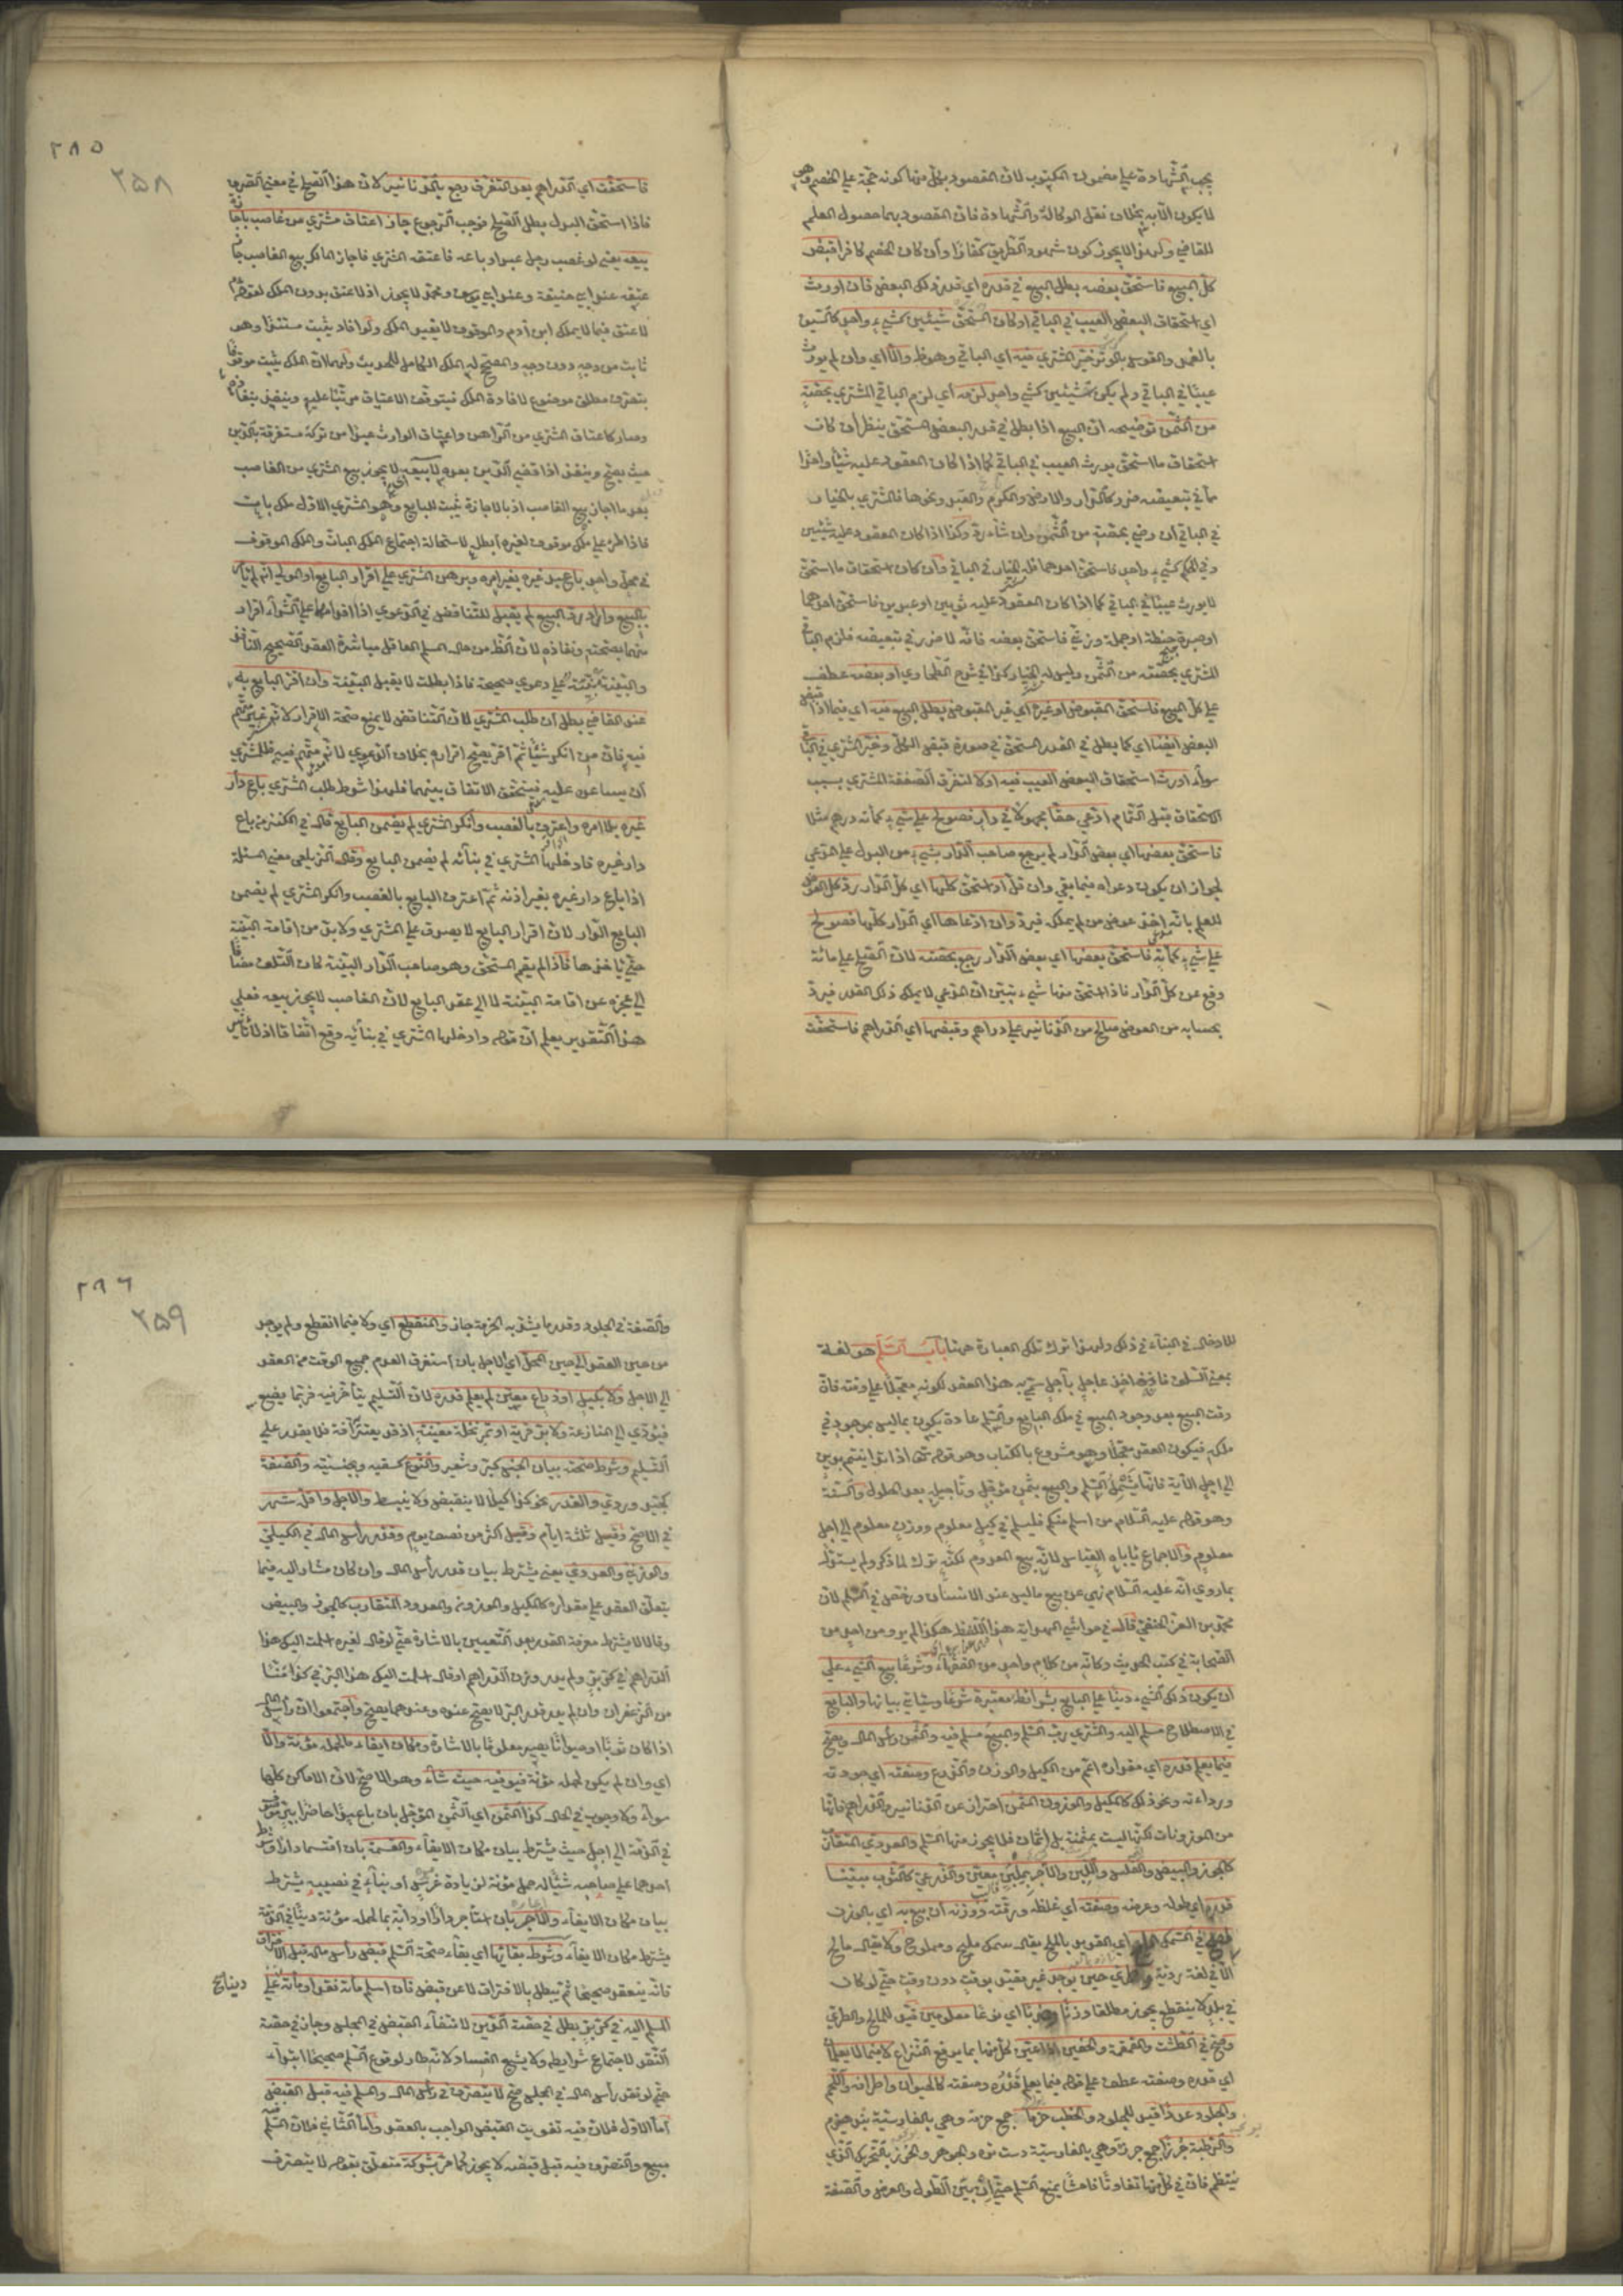 يجب الشهادة على مضمون المكتوب لان المقصود بكل منها كونه حجة على الخصم وهي
لا يكون الا به بخلاف نقل الوكالة والشهادة فان المقصود بهما حصول العلم
للقاضي ولهذا لا يجوز كون شهود الطريق كفارا وان كان الخصم كافرا قبض
كل المبيع فاستحق بعضه بطل البيع في قدره اي قدر ذلك البعض فان اورث
اي استحقاق البعض العيب في الباقي او كان المستحق شيئين كشيء واحد كالسيف
بالغمد والقوس بالوتر خير المشتري فيه اي الباقي وهو ظ والا اي وان لم يورث
عيبا في الباقي ولم يكن كشيئين كشيء واحد لزمه اي لزم الباقي المشتري بحصته
من الثمن توضيحه ان البيع اذا بطل في قدر البعض المستحق ينظر ان كان
استحقاق ما استحق يورث العيب في الباقي كما اذا كان المعقود عليه شيئا واحدا
مما في تبعيضه ضرر كالدار والارض والكرم والعبد ونحوها فالمشتري بالخيار
في الباقي ان رضي بحصته من الثمن وان شاء رد وكذا اذا كان المعقود عليه شيئين
وفي الحكم كشيء واحد فاستحق احدهما فله الخيار في الباقي وان كان استحقاق ما استحق
لا يورث عيبا في الباقي كما اذا كان المعقود عليه ثوبين او عبدين فاستحق احدهما
او صبرة حنطة او جملة وزني فاستحق بعضه فانه لا ضرر في تبعيضه فلزم الباقي
المشتري بحصته من الثمن وليس له الخيار كذا في شرح الطحاوي او بعضه عطف
على كل المبيع فاستحق المقبوض او غيره اي غير المقبوض بطل البيع فيه اي فيما اذا قبض
البعض ايضا اي كما بطل في القدر المستحق في صورة قبض الكل وخير المشتري في الباقي
سواء اورث استحقاق البعض العيب فيه او لا لتفرق الصفقة للمشتري بسبب
الاستحقاق قبل التمام ادعى حقا مجهولا في دار فصولح على شيء كمائة درهم مثلا
فاستحق بعضها اي بعض الدار لم يرجع صاحب الدار بشيء من البدل على المدعي
لجواز ان يكون دعواه فيما بقي وان قل او استحق كلها اي كل الدار رد كل العوض
للعلم بانه اخذ عوض من لم يملكه فيرد وان ادعاها اي الدار كلها فصولح
على شيء كمائة فاستحق بعضها اي بعض الدار رجع بحصته لان الصلح على مائة
وقع عن كل الدار فاذا استحق منها شيء تبين ان المدعي لا يملك ذلك القدر فيرد
بحسابه من العوض صالح من الدنانير على دراهم وقبضها اي الدراهم فاستحقت
٢٨٥
٢٥٨
فاستحقت اي الدراهم بعد التفرق رجع بالدنانير لان هذا الصلح في معنى الصرف
فاذا استحق البدل بطل الصلح فوجب الرجوع جاز اعتاق مشتري من غاصب باجازة
بيعه يعني لو غصب رجل عبدا وباعه فاعتقه المشتري فاجاز المالك بيع الغاصب جاز
عتقه عند ابي حنيفة وعند ابي يوسف ومحمد لا يجوز اذ لا عتق بدون الملك لقوله عم
لا عتق فيما لا يملك ابن آدم والموقوف لا يفيد الملك ولو افاد يثبت مستندا وهو
ثابت من وجه دون وجه والمصحح له الملك الكامل للحديث ولهما ان الملك يثبت موقوفا
بتصرف مطلق موضوع لافادة الملك فيتوقف الاعتاق مرتبا عليه وينفذ بنفاذه
وصار كاعتاق المشتري من الراهن واعتاق الوارث عبدا من تركة مستغرقة بالدين
حيث يصح وينفذ اذا قضى الدين بعده لا بيعه لا يجوز بيع المشتري من الغاصب
بعد ما اجاز بيع الغاصب اذ بالاجازة يثبت للبايع وهو المشتري الاول ملك بات
فاذا طرئ على ملك موقوف لغيره ابطله لاستحالة اجتماع الملك البات والملك الموقوف
في محل واحد باع عبد غيره بغير امره وبرهن المشتري على اقرار البايع او المولى انه لم يأمر
بالبيع واراد رد المبيع لم يقبل للتناقض في الدعوى اذا اقدامهما على الشراء اقرار
منهما بصحته ونفاذه لان الظ من حال المسلم العاقل مباشرة العقد الصحيح النافذ
والبينة مبنية على دعوى صحيحة فاذا بطلت لا يقبل البينة وان اقر البايع به
عند القاضي بطل ان طلب المشتري لان التناقض لا يمنع صحة الاقرار لانه غير متهم
فيه فان من انكر شيئا ثم اقر يصح اقراره بخلاف الدعوى لانه متهم فيه فللمشتري
ان يساعده عليه فيتحقق الاتفاق بينهما فلهذا شرط طلب المشتري باع دار
غيره بلا امره واعترف بالغصب وانكر المشتري لم يضمن البايع قال في الكنز من باع
دار غيره فادخلها المشتري في بنائه لم يضمن البايع وقال الزيلعي معنى المسئلة
اذا باع دار غيره بغير اذنه ثم اعترف البايع بالغصب وانكر المشتري لم يضمن
البايع الدار لان اقرار البايع لا يصدق على المشتري ولا بد من اقامة البينة
حتى يأخذها فاذا لم يقم المستحق وهو صاحب الدار البينة كان التلف مضافا
الى عجزه عن اقامة البينة لا الى عقد البايع لان الغاصب لا يجوز بيعه فعلى
هذا التقرير يعلم ان قوله وادخلها المشتري في بنائه وقع اتفاقا اذ لا تأثير
للادخال في البناء في ذلك ولهذا ترك تلك العبارة هنا باب السلم هو لغة
بمعنى السلف فانه اخذ عاجل بآجل سمي به هذا العقد لكونه معجلا على وقته فان
وقت البيع بعد وجود المبيع في ملك البايع والسلم عادة يكون بما ليس بموجود في
ملكه فيكون العقد معجلا وهو مشروع بالكتاب وهو قوله تعالى اذا تداينتم بدين
الى اجل الآية فانها يشمل السلم والبيع بثمن مؤجل وتأجيله بعد الحلول والسنة
وهو قوله عليه السلام من اسلم منكم فليسلم في كيل معلوم ووزن معلوم الى اجل
معلوم والاجماع ياباه القياس لانه بيع المعدوم لكنه ترك لما ذكر ولم يستدل
بما روي انه عليه السلام نهى عن بيع ما ليس عند الانسان ورخص في السلم لان
محمد بن العز الحنفي قال في حواشي الهداية هذا اللفظ هكذا لم يرو من احد من
الصحابة في كتب الحديث وكأنه من كلام واحد من الفقهاء وشرعا بيع الشيء على
ان يكون ذلك الشيء دينا على البايع بشرائط معتبرة شرعا وسيأتي بيانها والبايع
في الاصطلاح مسلم اليه والمشتري رب السلم والمبيع مسلم فيه والثمن رأس المال ويصح
فيما يعلم قدره اي مقداره اعم من الكيل والوزن والذرع وصفته اي جودته
ورداءته ونحو ذلك كالمكيل والموزون المثمن احتراز عن الدنانير والدراهم فانها
من الموزونات لكنها ليست بمثمنة بل اثمان فلا يجوز منها السلم والعددي المتقارب
كالجوز والبيض والفلس واللبن والآجر بملبن معين والذرعي كالثوب مبينا
قدره اي طوله وعرضه وصفته اي غلظه ورقته ووزنه ان بيع به اي بالوزن
فصح في السمك المليح اي القديد بالملح يقال سمك مليح ومملوح ولا يقال مالح
الا في لغة ردية والطري حين يوجد غير مقيد بوقت دون وقت حتى لو كان
في بلد لا ينقطع يجوز مطلقا وزنا وضربا اي نوعا معلومين قيد للمالح والطري
وصح في الطشت والقمقمة والخفين الا اذا تعين لكل منها بما يدفع النزاع لا فيما لا يعلمان
اي قدره وصفته عطف على قوله فيما يعلم قدره وصفته كالحيوان واطرافه واللحم
والجلود عددا قيد للجلود والحطب حزما جمع حزمة وهي بالفارسية بند هيزم
والرطبة جرزا جمع جرزة وهي بالفارسية دسته تره والجوهر والخرز بالتحريك الذي
ينتظم فان في كل منها تفاوتا فاحشا يمنع السلم حتى ان بين الطول والعرض والصفة
٢٨٦
٢٥٩
والصفة في الجلود وقدر ما يشد به الحزمة جاز والمنقطع اي ولا فيما انقطع ولم يوجد
من حين العقد الى حين المحل اي الاجل بان استغرق العدم جميع الوقت من العقد
الى الاجل ولا بكيل او ذراع معين لم يعلم قدره لان التسليم يتأخر فيه فربما يضيع
فيؤدي الى المنازعة ولا بر قرية او تمر نخلة معينة اذ قد يعتريه آفة فلا يقدر على
التسليم وشرط صحته بيان الجنس كبر وشعير والنوع كسقيه وبخسيه والصفة
كجيد وردي والقدر نحو كذا كيلا لا ينقبض ولا ينبسط والاجل واقله شهر
في الاصح وقيل ثلثة ايام وقيل اكثر من نصف يوم وقدر رأس المال في الكيلي
والوزني والعددي يعني يشترط بيان قدر رأس المال وان كان مشارا اليه فيما
يتعلق العقد على مقداره كالمكيل والموزون والمعدود المتقارب كالجوز والبيض
وقالا لا يشترط معرفة القدر بعد التعيين بالاشارة حتى لو قال لغيره اسلمت اليك هذا
الدراهم في كر بر ولم يدر وزن الدراهم او قال اسلمت اليك هذا البر في كذا منا
من الزعفران وان لم يدر قدر البر لا يصح عنده وعندهما يصح واجتمعوا ان رأس المال
اذا كان ثوبا او حيوانا يصير معلوما بالاشارة ومكان ايفاء ما لحمله مؤنة والا
اي وان لم يكن لحمله مؤنة فيوفيه حيث شاء وهو الاصح لان الاماكن كلها
سواء ولا وجوب في الحال كذا الثمن اي الثمن المؤجل بان باع عبدا حاضرا ببر موصوف
في الذمة الى اجل حيث يشترط بيان مكان الايفاء والقسمة بان اقتسما دارا وشرط
احدهما على صاحبه شيئا له حمل مؤنة لزيادة غرس او بناء في نصيبه يشترط
بيان مكان الايفاء والاجر بان استأجر دارا او دابة بما لحمله مؤنة دينا في الذمة
يشترط مكان الايفاء وشرط بقائها اي بقاء صحة السلم قبض رأس ماله قبل الافتراق
فانه ينعقد صحيحا ثم يبطل بالافتراق لا عن قبض فان اسلم مائة نقدا ومائة على
دينا ع
المسلم اليه في كر بر بطل في حصة الدين لانتفاء القبض في المجلس وجاز في حصة
النقد لاجتماع شرايطه ولا يشيع الفساد لانه طار لوقوع السلم صحيحا ابتداء
حتى لو نقد رأس المال في المجلس صح لا يتصرف في رأس المال والمسلم فيه قبل القبض
اما الاول فلان فيه تفويت القبض الواجب بالعقد واما الثاني فلان المسلم فيه
مبيع والتصرف فيه قبل قبضه لا يجوز كما مر بشركة متعلق بقوله لا يتصرف